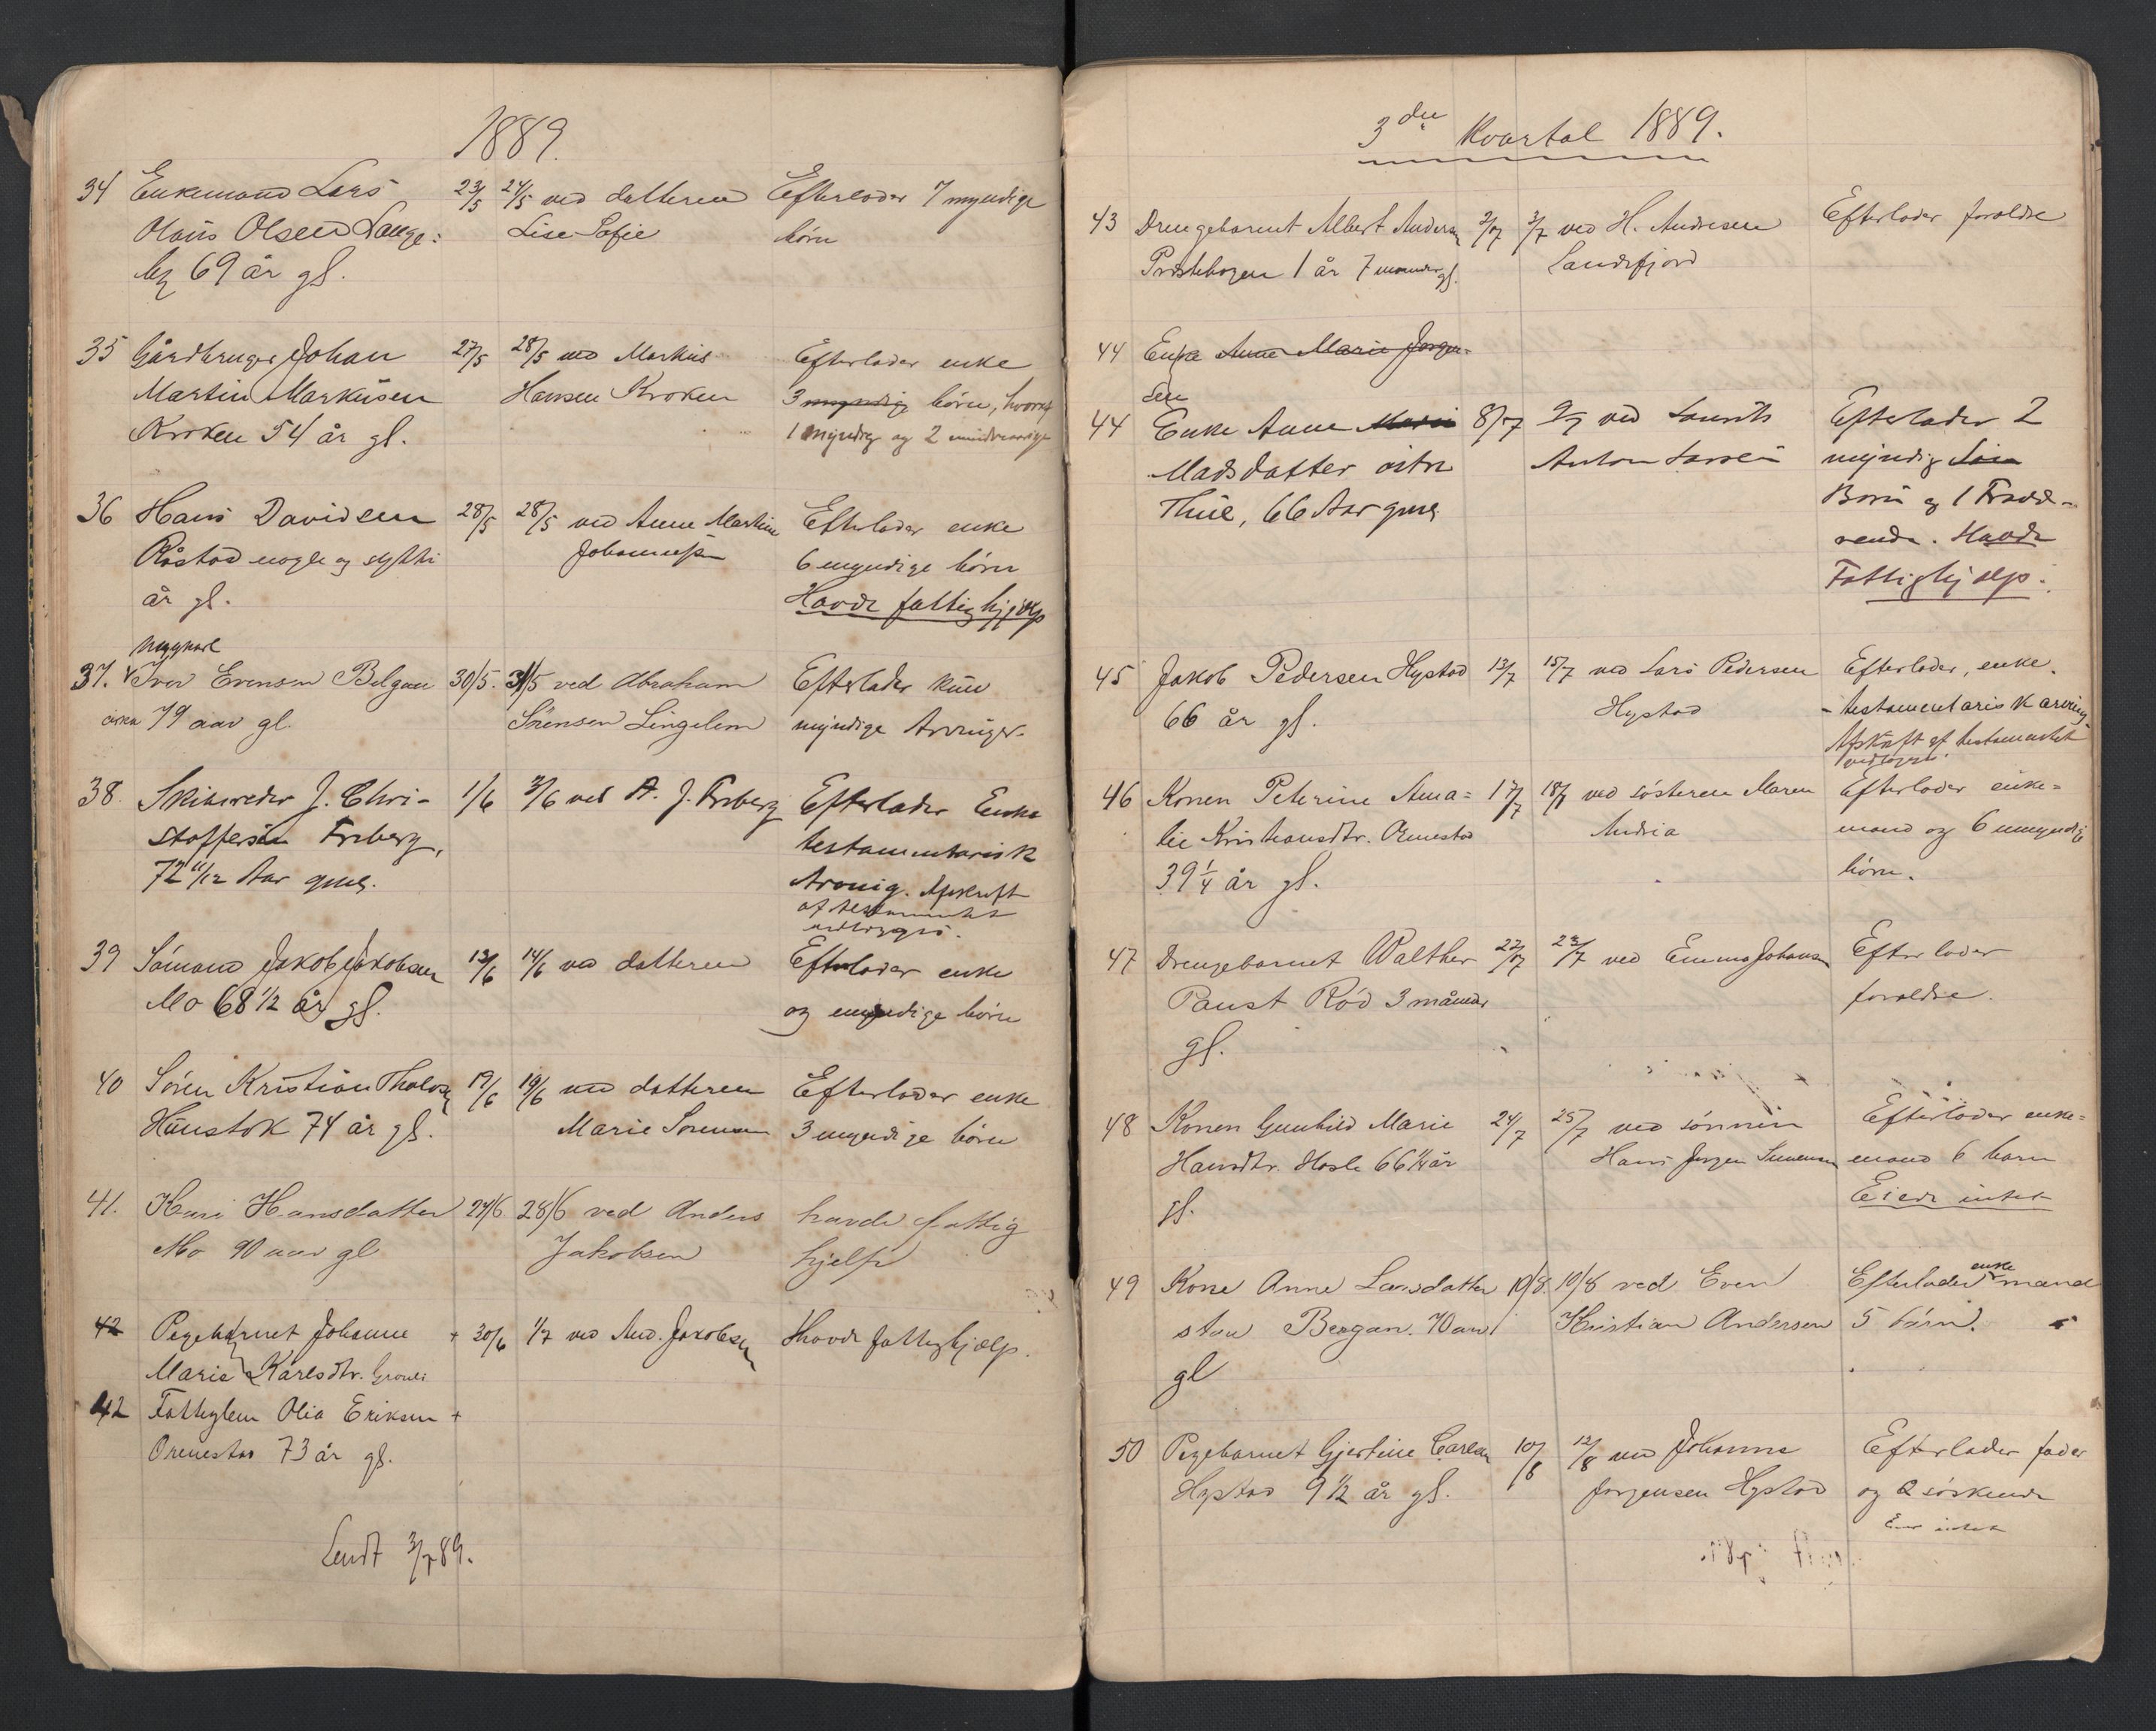 1889.
34 Enkemand Lars 23/5 24/5 ved datteren Efterlader 7 myndige
Olaus Olsen Lauge: Lise Sofie børn
by 69 år gl.
35 Gårdbruger Johan 27/5 28/5 ved Markus Efterlader enke
Martin Markusen Hansen Kroken 3 myndige børn, hvoraf
Kroken 54 år gl. 1 myndig og 2 mindreaarige
36 Hans Davidsen 28/5 28/5 ved Anne Martine Efterlader enke
Råstad nogle og sytti Johannesen 6 myndige børn
år gl. Havde fattighjælp
37. Iver Evensen Bolgan 30/5. 31/5 ved Abraham Efterlader kun
cirka 79 aar gl. Sørensen Lingelem myndige Arvinger.
38. Skibsreder J. Chri- 1/6 3/6 ved A. J. Freberg Efterlader Enke
stoffersen Freberg, testamentarisk
72 11/12 Aar gml. Arving. Afskrift
af testamentet
vedlægges.
39 Sømand Jakob Jakobsen 13/6 14/6 ved datteren Efterlader enke
Mo 68 1/2 år gl. og myndige børn
40 Søren Kristian Tholvsen 17/6 19/6 ved datteren Efterlader enke
Hunstok 74 år gl. Marie Sørensen 3 myndige børn
41. Kari Hansdatter 27/6 28/6 ved Anders havde fattig
Mo 90 aar gl Jakobsen hjelp
42 Pigebarnet Johanne + 30/6 1/7 ved And. Jakobsen Havde fattighjælp.
Marie Karlsdtr.
42 Fattiglem Olia Eriksen +
Ormestad 73 år gl.
Sendt 3/7 89.
3die Kvartal 1889.
43 Drengebarnet Albert Andersen 2/7 3/7 ved H. Andresen Efterlader forældre
Præstehagen 1 år 7 måneder gl. Sandefjord
44 Enke Anne Marie Jørgen-
sen
44 Enke Anne Marie 8/7 9/7 ved Laurits Efterlader 2
Madsdatter østre Anton Larsen myndig
Thue, 66 Aar gml. Børn og 1 Fravæ-
rende. Havde
Fattighjælp.
45 Jakob Pedersen Hystad 13/7 15/7 ved Lars Pedersen Efterlader, enke.
66 år gl. Hystad - testamentarisk arving.
Afskrift af testamentet
vedlægges.
46 Konen Petrine Ama= 17/7 18/7 ved søsteren Maren Efterlader enke=
lie Kristiansdtr. Ormestad Andrea mand og 6 umyndige
39 1/4 år gl. børn.
47 Drengebarnet Walther 22/7 23/7 ved Emma Johansen Efterlader
Paust Rød 3 måneder forældre.
gl.
48 Konen Gunhild Marie 24/7 25/7 ved sønnen Efterlader enke=
Hansdtr. Hasle 66 1/4 år Hans Jørgen Simensen mand 6 barn
gl. Eiede intet
49 Kone Anne Larsdatter 10/8. 10/8 ved Even Efterlader enke mand
stau Bergan. 70 aar Kristian Andersen 5 børn.
gl
50 Pigebarnet Gjertine Carlsen 10/8 12/8 ved Johanne Efterlader fader
Hystad 9 1/2 år gl. Jørgensen Hystad og 2 søskende
Eier intet